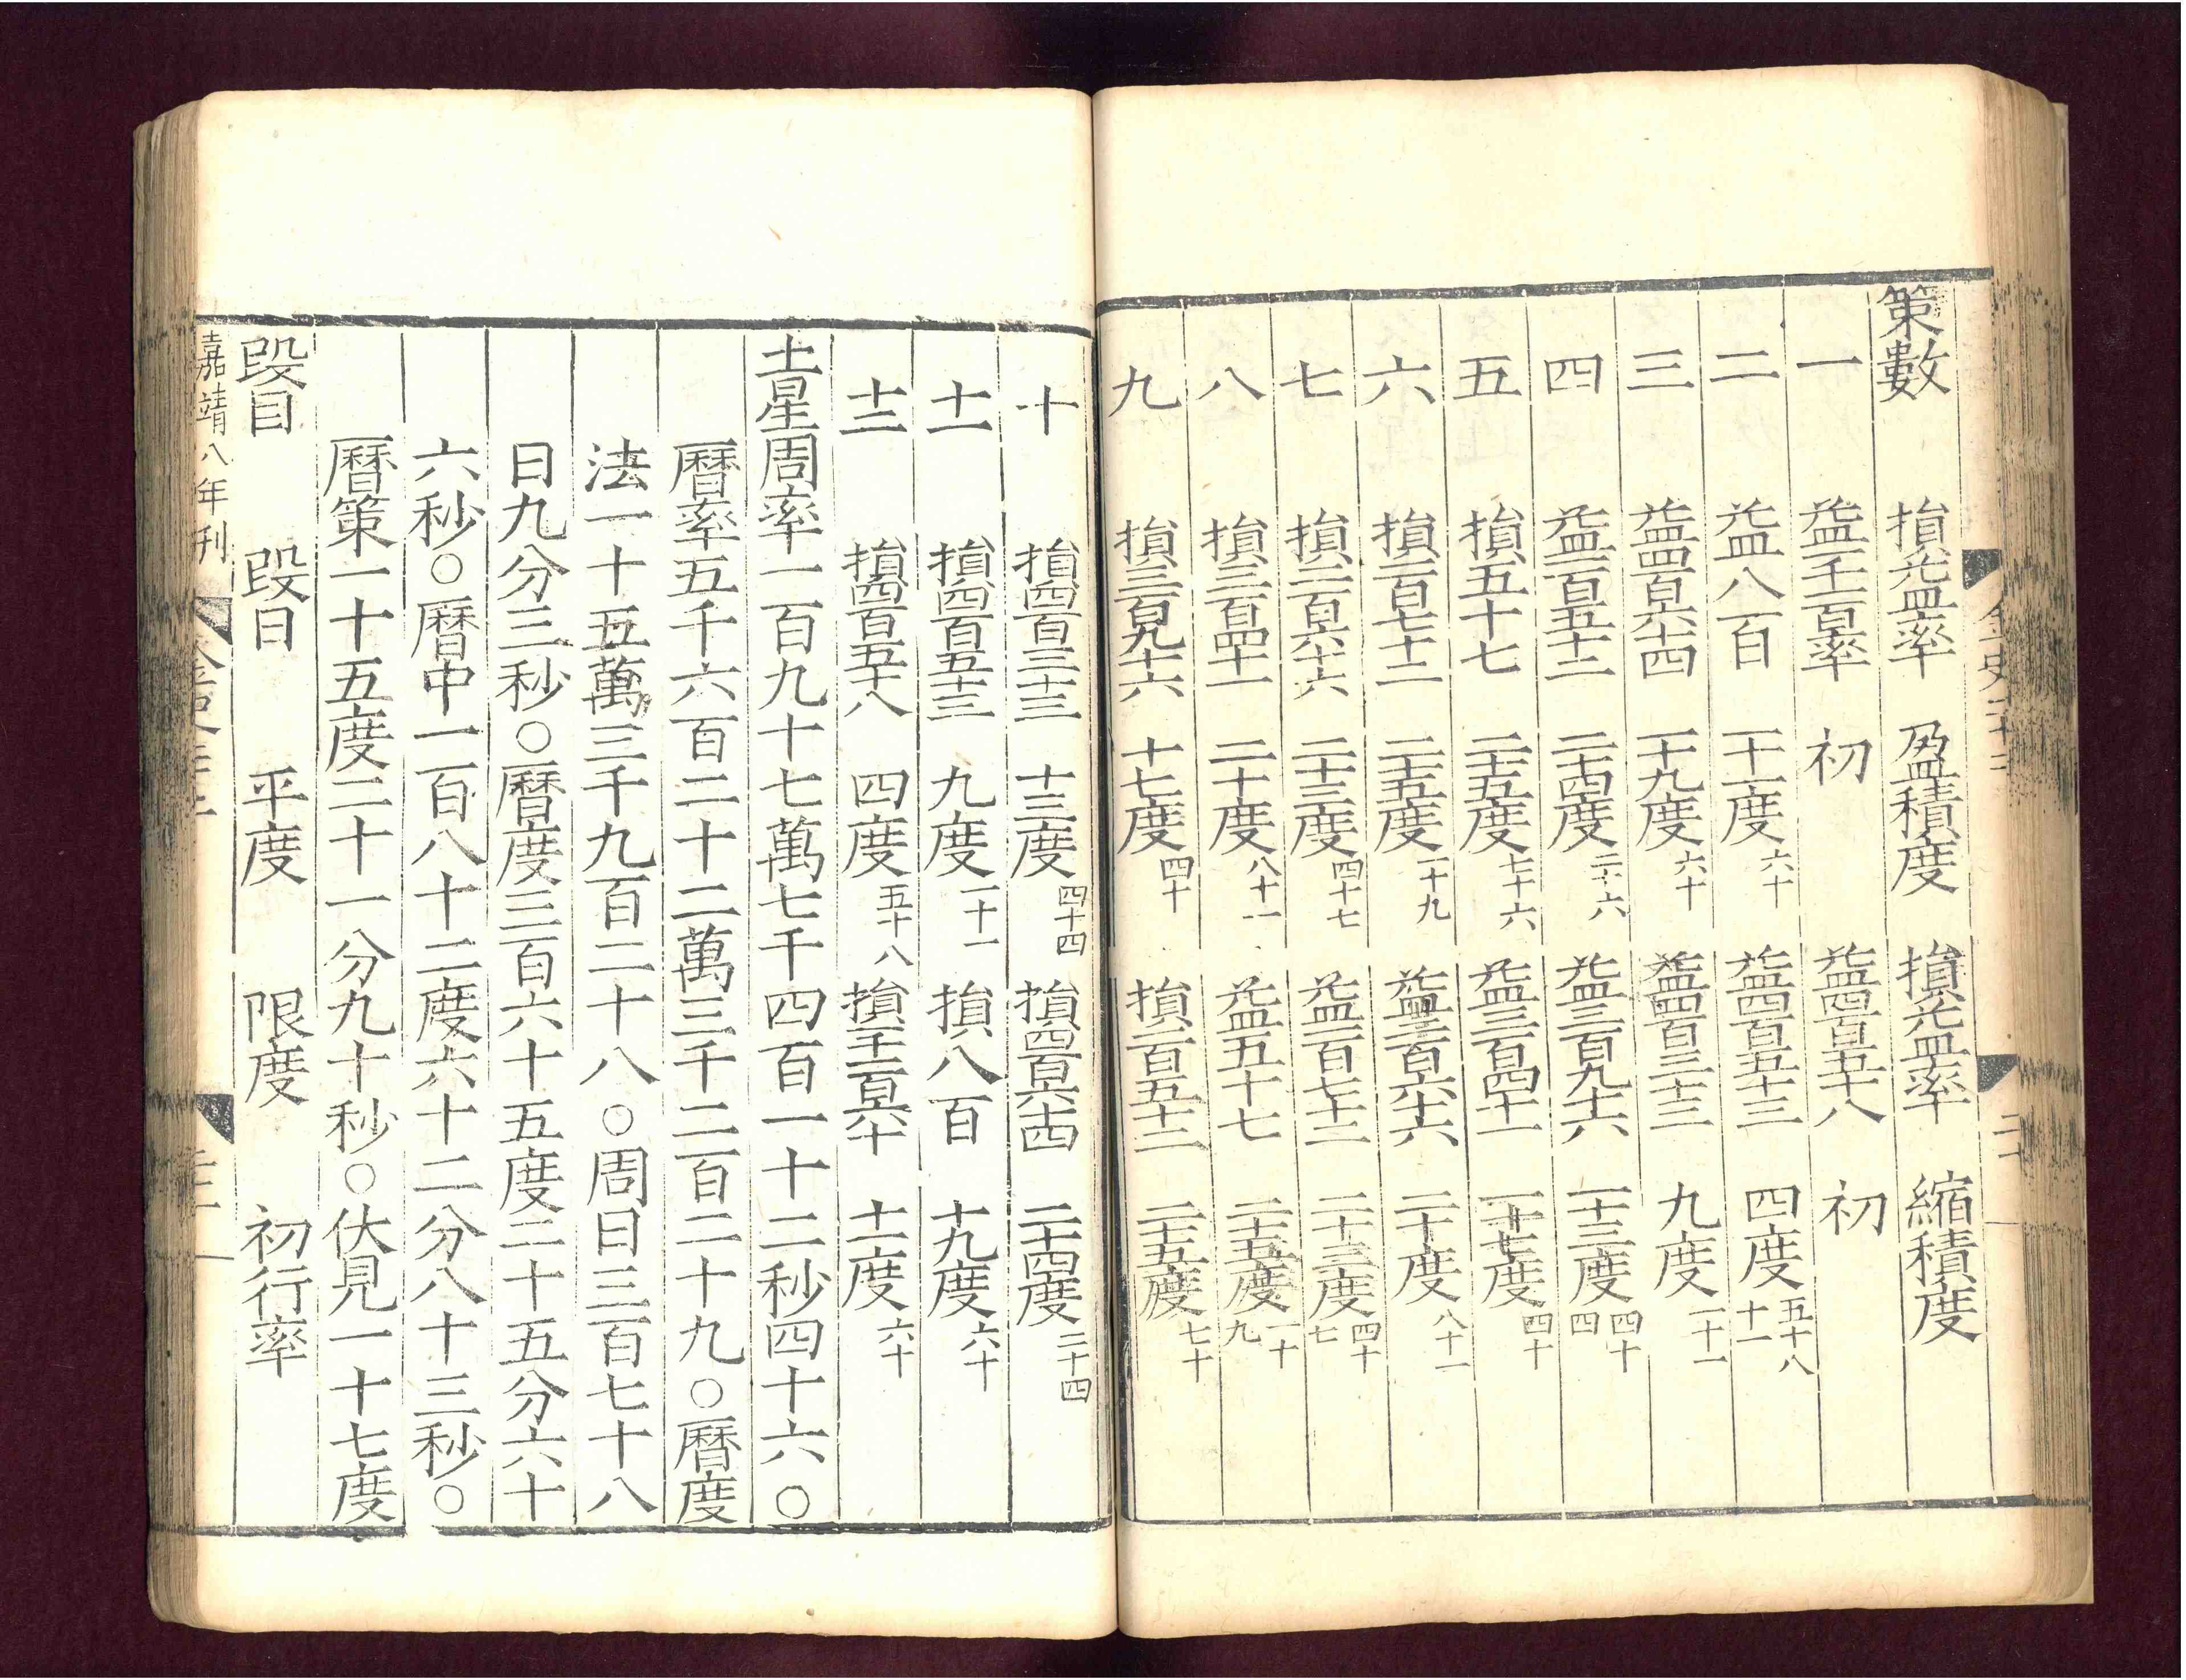 策數 損益率 盈積度 損益率 縮積度
一 益一千一百率 初 益四百五十八 初
二 益八百 一十一度六十 益四百五十三 四度五十八十一
三 益四百六十四 一十九度六十 益四百三十三 九度一十一
四 益一百五十二 二十四度二十六 益三百九十六 一十三度四十四
五 損五十七 二十五度七十六 益三百四十一 一十七度四十
六 損一百七十二 二十五度一十九 益二百六十六 二十度八十一
七 損二百六十六 二十三度四十七 益一百七十二 二十三度四十七
八 損三百四十一 二十度八十一 益五十七 二十五度一十九
九 損三百九十六 十七度四十 損一百五十二 二十五度七十
金史二十二
十 損四百三十三 十三度四十四 損四百六十四 二十四度二十四
十一 損四百五十三 九度一十一 損八百 十九度六十
十二 損四百五十八 四度五十八 損一千一百六十 十一度六十
土星周率一百九十七萬七千四百一十二秒四十六○
曆率五千六百二十二萬三千二百二十九○曆度
法一十五萬三千九百二十八○周日三百七十八
日九分三秒○曆度三百六十五度二十五分六十
六秒○曆中一百八十二度六十二分八十三秒○
曆策一十五度二十一分九十秒○伏見一十七度
段目 段日 平度 限度 初行率
嘉靖八年刊